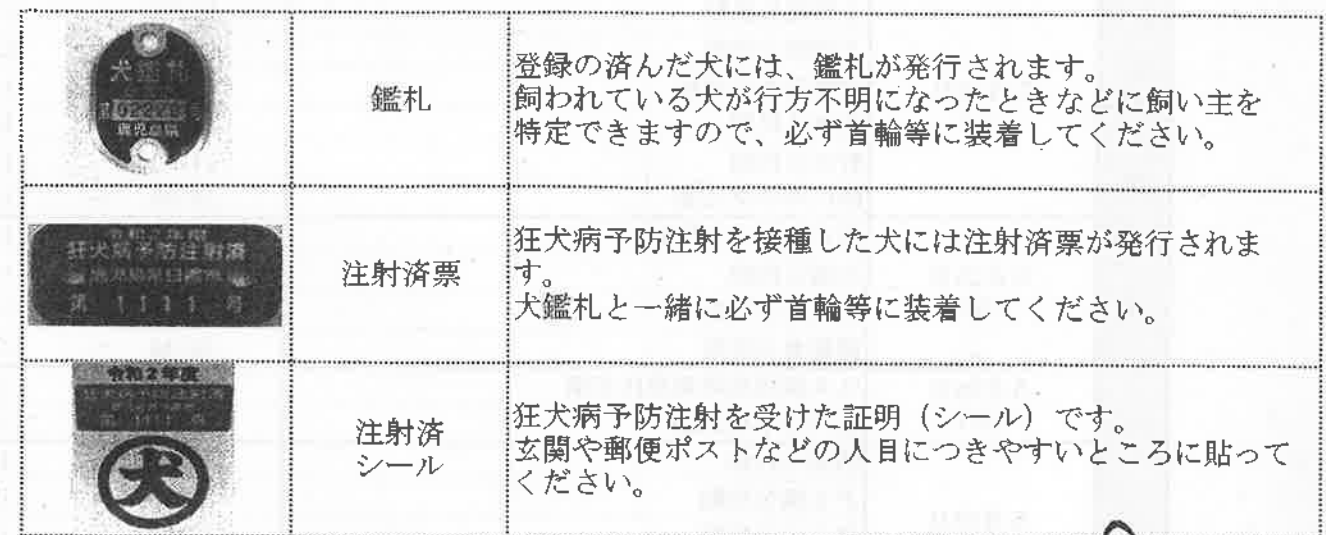 犬鑑札
02228
鹿児島県
鑑札
登録の済んだ犬には、鑑札が発行されます。
飼われている犬が行方不明になったときなどに飼い主を
特定できますので、必ず首輪等に装着してください。
狂犬病予防注射済
第 1111 号
注射済票
狂犬病予防注射を接種した犬には注射済票が発行されま
す。
犬鑑札と一緒に必ず首輪等に装着してください。
令和2年度
犬
注射済
シール
狂犬病予防注射を受けた証明（シール）です。
玄関や郵便ポストなどの人目につきやすいところに貼って
ください。